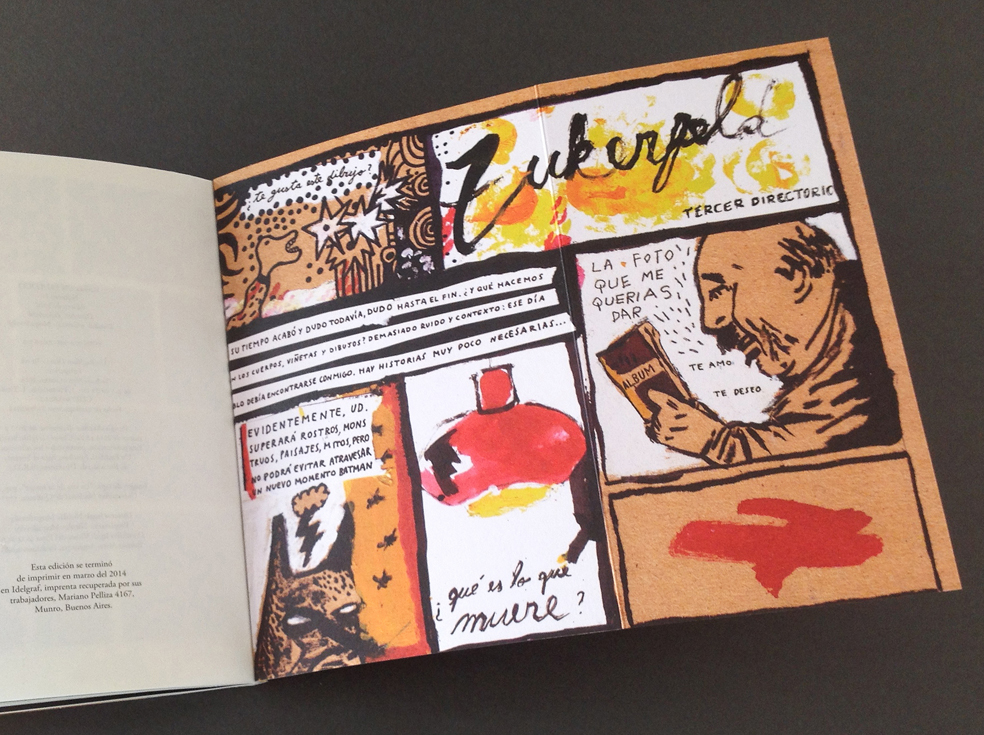 Esta edición se terminó
de imprimir en marzo del 2014
en Idelgraf, imprenta recuperada por sus
trabajadores, Mariano Pelliza 4167,
Munro, Buenos Aires.
¿te gusta este dibujo?
Zukerfeld
TERCER DIRECTORIO
SU TIEMPO ACABÓ Y DUDO TODAVÍA, DUDO HASTA EL FIN. ¿Y QUÉ HACEMOS
LOS CUERPOS, VIÑETAS Y DIBUJOS? DEMASIADO RUIDO Y CONTEXTO: ESE DÍA
DEBÍA ENCONTRARSE CONMIGO. HAY HISTORIAS MUY POCO NECESARIAS...
LA FOTO
QUE ME
QUERIAS
DAR
ALBUM
TE AMO.
TE DESEO
EVIDENTEMENTE, UD.
SUPERARÁ ROSTROS, MONS
TRUOS, PAISAJES, MITOS, PERO
NO PODRÁ EVITAR ATRAVESAR
UN NUEVO MOMENTO BATMAN
¿qué es lo que
muere?